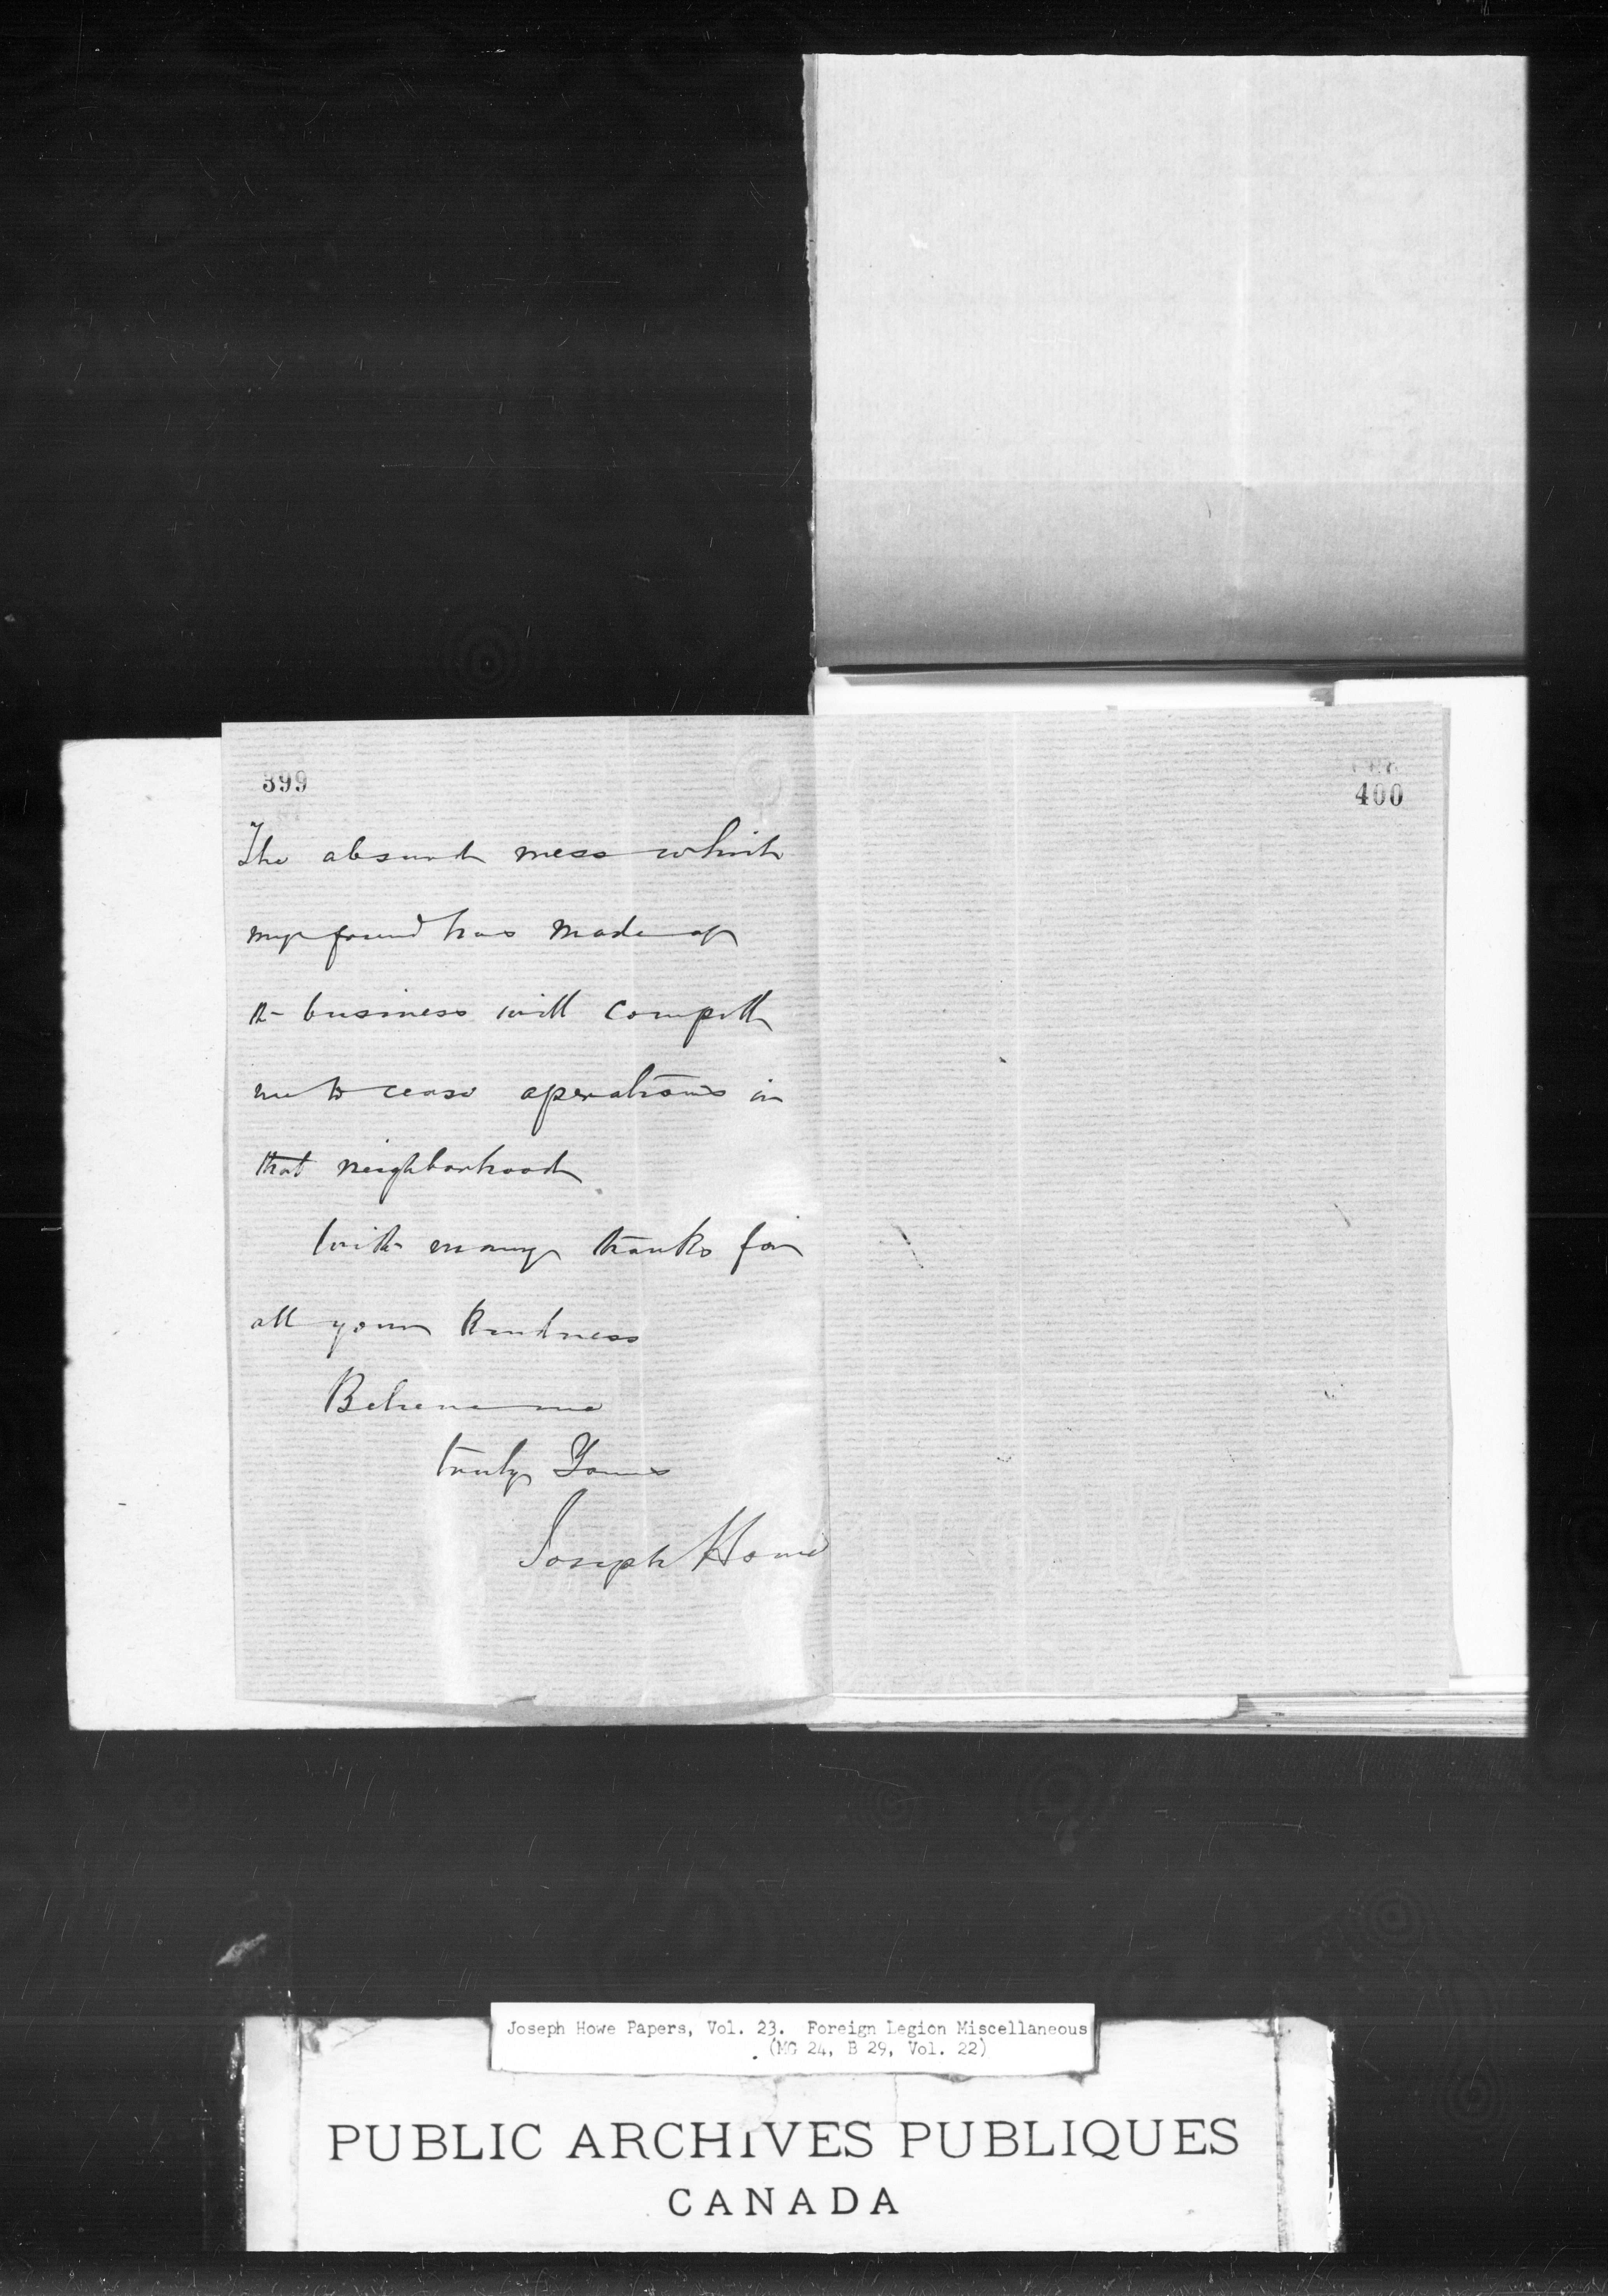 399
The absurd mess which
my friend has made of
the business will compell
me to cease operations in
that neighborhood
With many thanks for
all your kindness
Believe me
truly Yours
Joseph Howe
400
Joseph Howe Papers, Vol. 23. Foreign Legion Miscellaneous
(MG 24, B 29, Vol. 22)
PUBLIC ARCHIVES PUBLIQUES
CANADA